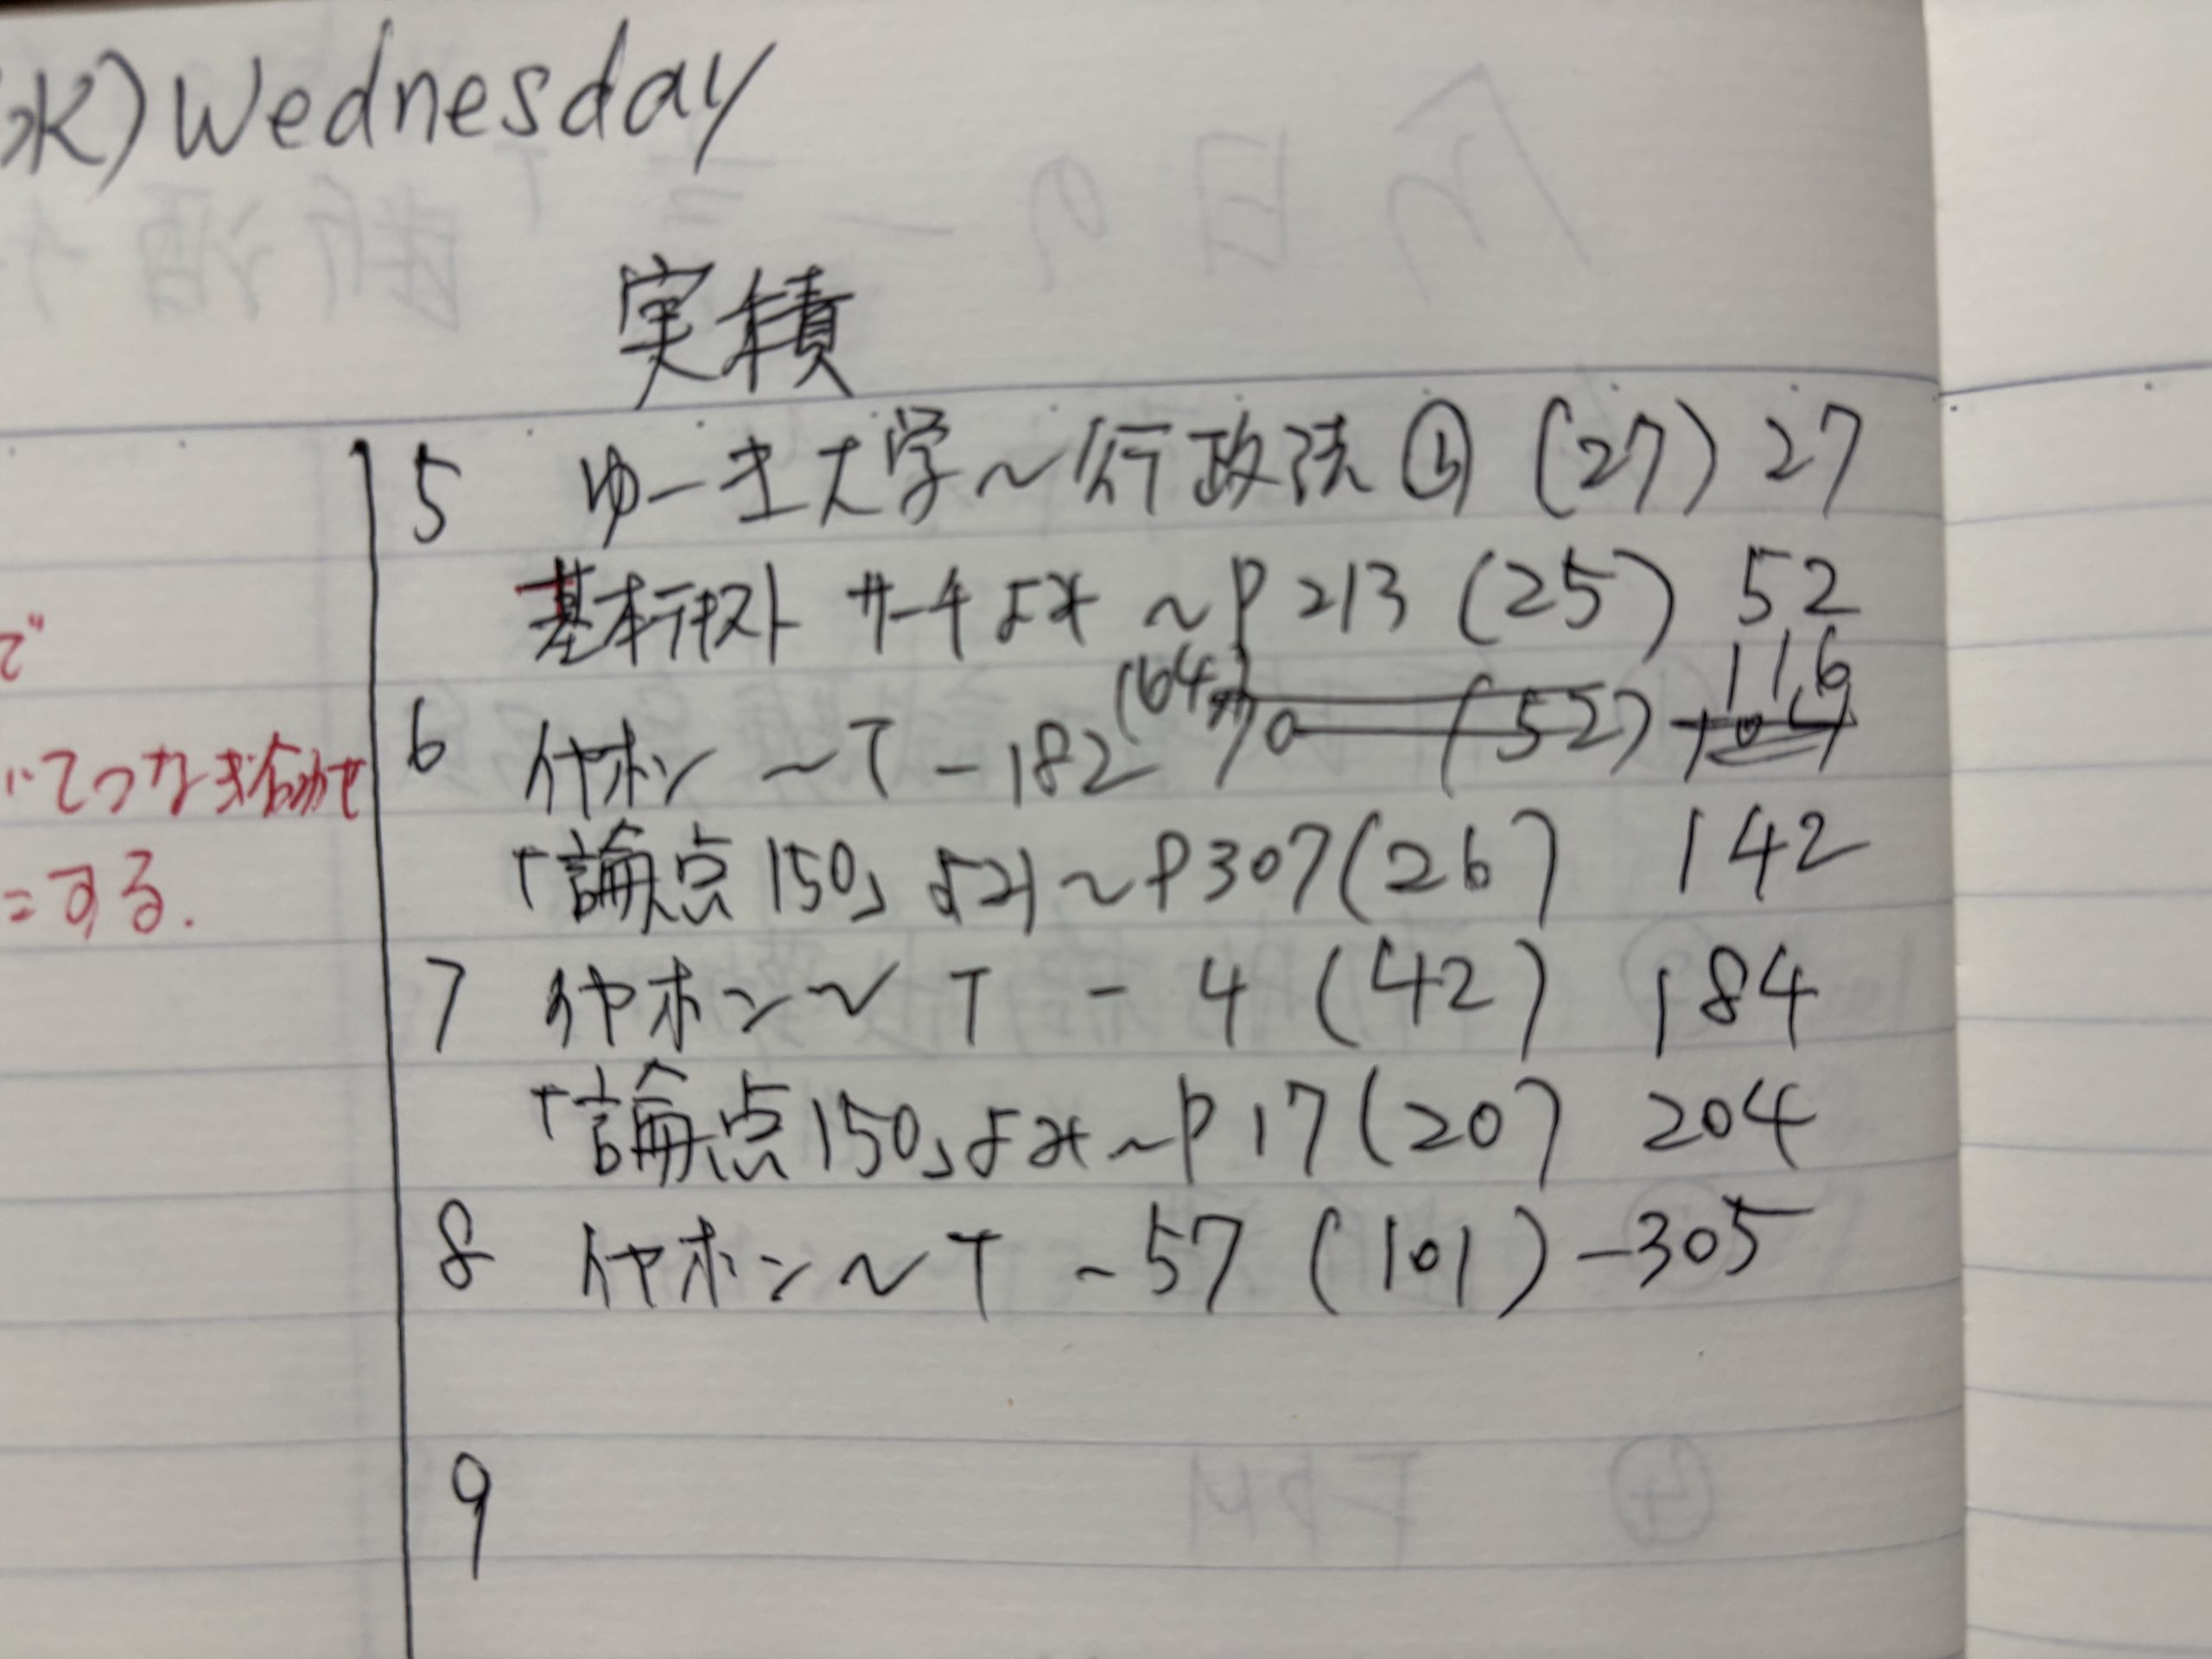 水) Wednesday
実績
5 ゆーき大学〜行政法 (27) 27
基本テキスト サーチよみ 〜P213 (25) 52
で
(64) 116
6 イヤホン 〜T-182 (52)
いてつなぎ合わせ
「論点150」よみ〜P307(26) 142
にする.
7 イヤホン〜T-4 (42) 184
「論点150」よみ〜P17(20) 204
8 イヤホン〜T-57 (101) -305
9